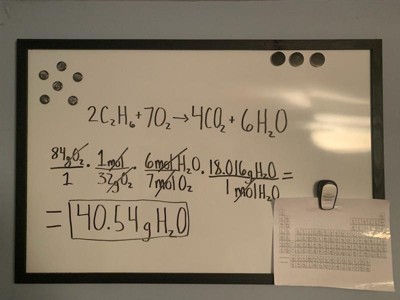 2C₂H₆ + 7O₂ → 4CO₂ + 6H₂O
84gO₂/1 · 1mol/32gO₂ · 6molH₂O/7molO₂ · 18.016gH₂O/1molH₂O =
= 40.54gH₂O